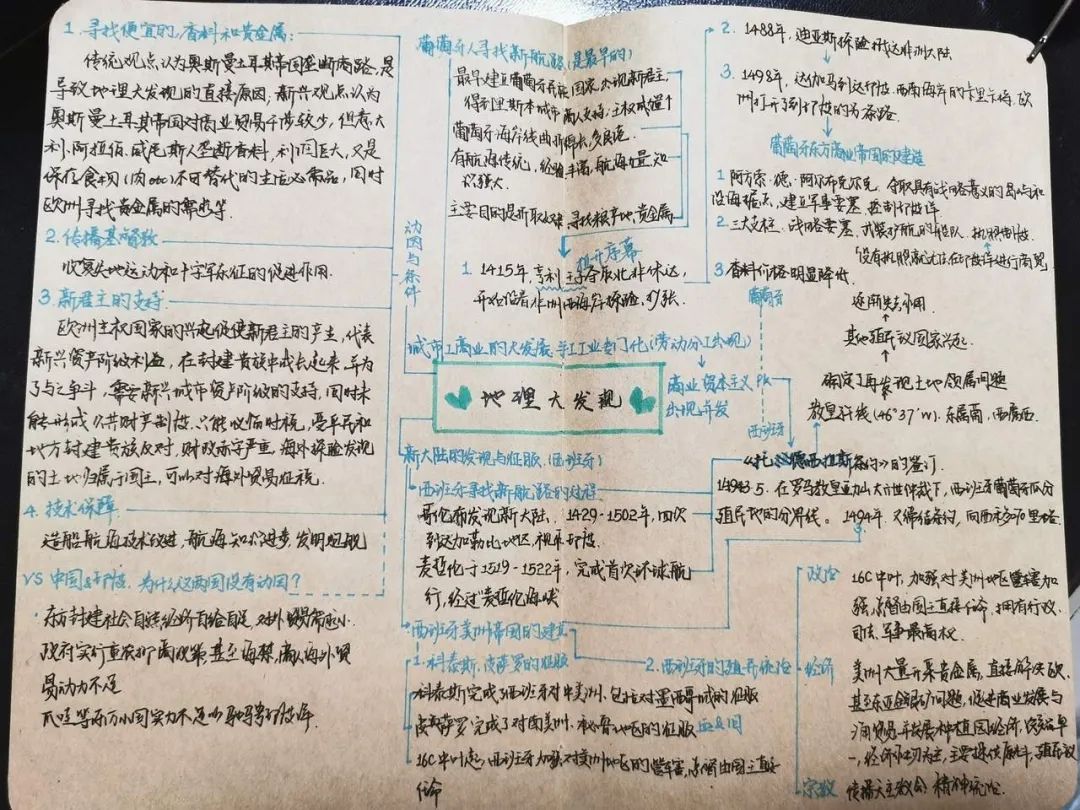 1. 寻找便宜的香料和贵金属:
传统观点认为奥斯曼土耳其帝国垄断商路,是
导致地理大发现的直接原因,新兴观点认为
奥斯曼土耳其帝国对商业贸易干涉较少,但意大
利、阿拉伯、威尼斯人垄断香料,利润巨大,又是
保存食物(肉etc)不可替代的生活必需品,同时
欧洲寻找贵金属的需求等
2. 传播基督教
收复失地运动和十字军东征的促进作用.
3. 新君主的支持
欧洲主权国家的兴起促使新君主的产生,代表
新兴资产阶级利益,在封建贵族中成长起来,并为
了与之争斗,需要新兴城市资产阶级的支持,同时未
能形成公共财产制性,只能收临时税,受平民和
地方封建贵族反对,财政赤字严重,海外探险发现
的土地归属于国王,可以对海外贸易征税.
4. 技术保障
造船航海技术改进,航海知识进步,发明
VS 中国&印度,为什么这两国没有动因?
·东方封建社会自然经济自给自足,对外贸易需求小.
政府实行重农抑商政策,甚至海禁,商人海外贸
易动力不足
爪哇等东方小国实力不足以驰骋印度洋
动因与条件
葡萄牙人寻找新航路(是最早的)
最早建立葡萄牙民族国家,出现新君主,
得到里斯本城市商人支持;主权威望↑
葡萄牙海岸线曲折绵长,多良港
有航海传统,经验丰富,航海力量知
识强大.
主要目的是开取奴隶,寻找粮产地,贵金属
拉开序幕
1. 1415年,亨利王子夺取北非休达,
开始沿着非洲西海岸探险,扩张
城市工商业的大发展,手工业专门化(劳动分工出现)
地理大发现
商业资本主义
出现并发
新大陆的发现与征服.(西班牙)
·西班牙寻找新航路的过程
哥伦布发现新大陆, 1429-1502年,四次
到达加勒比地区,视华印度.
麦哲伦于1519-1522年,完成首次环球航
行,经过麦哲伦海峡
·西班牙美洲帝国的建立
1. 科泰斯,皮萨罗的征服
科泰斯完成了西班牙对中美洲,包括对墨西哥城的征服
皮萨罗完成了对南美洲、秘鲁地区的征服
16C中叶起,西班牙加强对美洲地区的管辖,总督由国王直接
任命
2. 1488年,迪亚斯探险抵达非洲大陆
3. 1498年,达伽马到达印度西南海岸的卡里卡特,欧
洲打开了到印度的贸易路
葡萄牙东方商业帝国的建造
1 阿方索·德·阿尔布克尔克,夺取具有战略意义的岛屿和
沿海据点,建立军事要塞,控制印度洋
2. 三大支柱:战略要塞,武装护航的船队,执照制度.
"没有执照就无法在印度洋进行商贸
3 香料价格明显降低
葡萄牙
逐渐失去作用
其他殖民议国家兴起.
确定了再发现土地领属问题
教皇子午线(46°37'W). 东属葡,西属西.
PK
西班牙
《托尔德西拉斯条约》的签订
1493.5.在罗马教皇亚历山大六世仲裁下,西班牙葡萄牙瓜分
殖民地的分界线。1494年,又缔结条约,向西移370里格.
政治 16C中叶,加强对美洲地区管辖加
强,总督由国王直接任命,拥有行政、
司法、军事最高权.
2. 西班牙的殖民统治
经济 美洲大量开采贵金属,直接解决欧.
甚至东亚金银矿问题,促进商业发展与
海贸易,并发展种植园经济,作物单
一,经济作物为主,主要提供原料,殖民议
宗教 传播天主教会 精神统治.